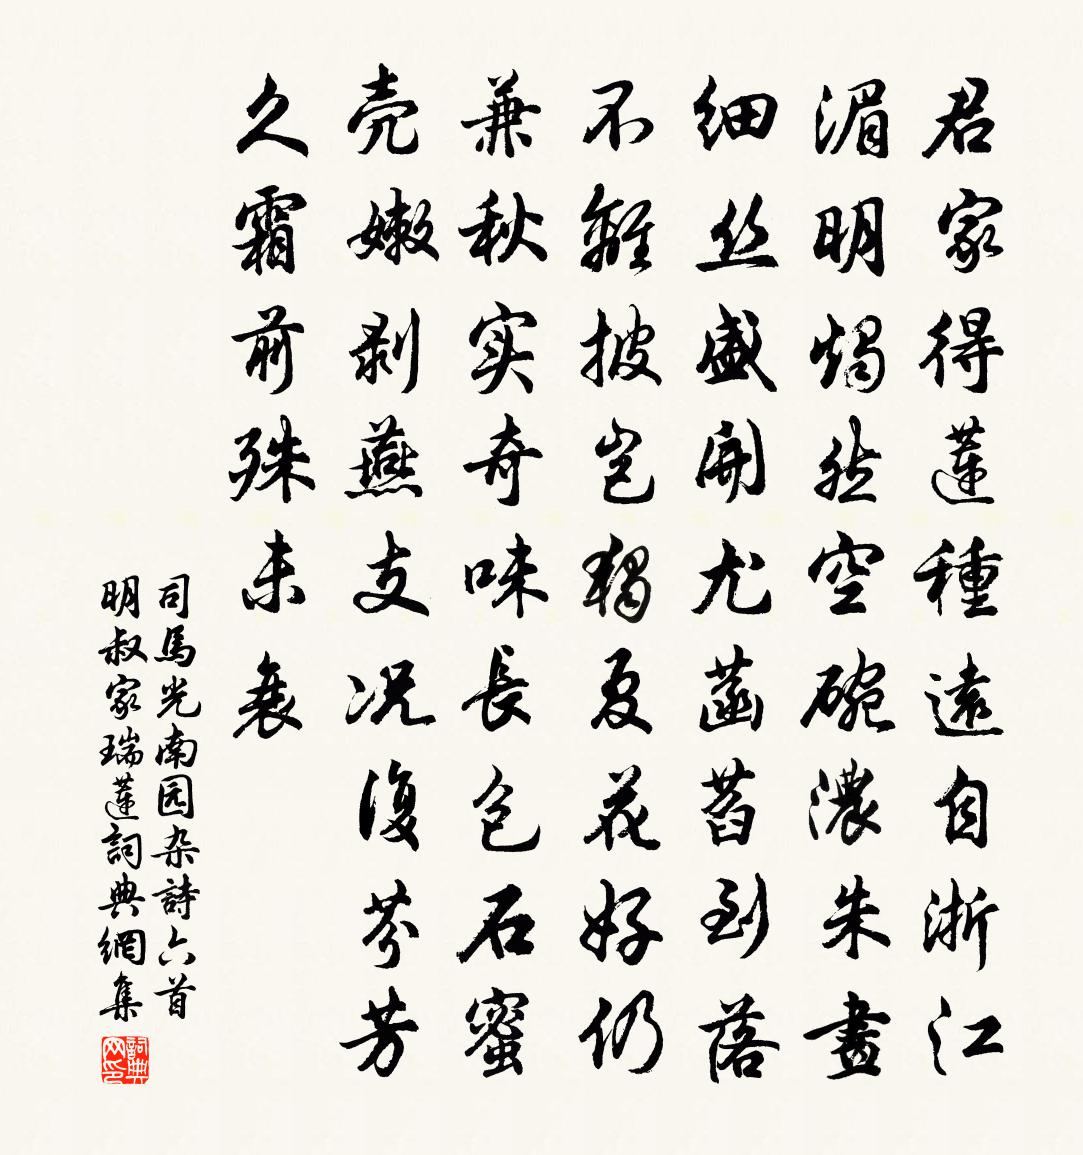 君家得蓮種遠自浙江
湄明燭然空碗濃朱畫
細丝盛開尤菡萏到落
不離披岂獨夏花好仍
兼秋实奇味長包石蜜
壳嫩剥燕支况復芬芳
久霜前殊未衰
司馬光南园杂詩六首
明叔家瑞蓮詞典網集
詞典
网印